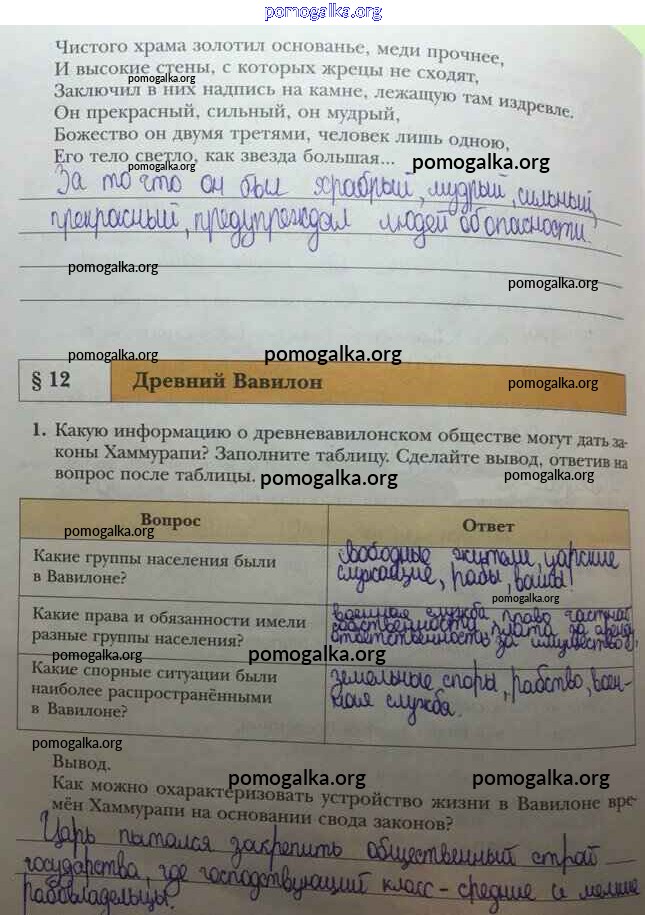 pomogalka.org
Чистого храма золотил основанье, меди прочнее,
И высокие стены, с которых жрецы не сходят,
pomogalka.org
Заключил в них надпись на камне, лежащую там издревле.
Он прекрасный, сильный, он мудрый,
Божество он двумя третями, человек лишь одною,
Его тело светло, как звезда большая...
pomogalka.org
pomogalka.org
За то что он был храбрый, мудрый, сильный,
прекрасный, предупреждал людей об опасности.
pomogalka.org
pomogalka.org
pomogalka.org
pomogalka.org
§ 12 Древний Вавилон
pomogalka.org
1. Какую информацию о древневавилонском обществе могут дать за-
коны Хаммурапи? Заполните таблицу. Сделайте вывод, ответив на
вопрос после таблицы.
pomogalka.org
pomogalka.org
Вопрос
Ответ
pomogalka.org
Какие группы населения были
в Вавилоне?
свободные жители, царские
служащие, рабы,
pomogalka.org
Какие права и обязанности имели
разные группы населения?
военная служба, право частной
собственности, плата за аренду,
ответственность за имущество
pomogalka.org
pomogalka.org
Какие спорные ситуации были
наиболее распространёнными
в Вавилоне?
земельные споры, рабство, воен-
ная служба.
pomogalka.org
Вывод.
pomogalka.org
pomogalka.org
Как можно охарактеризовать устройство жизни в Вавилоне вре-
мён Хаммурапи на основании свода законов?
Царь пытался закрепить общественный строй
государства, где господствующий класс - средние и мелкие
рабовладельцы.